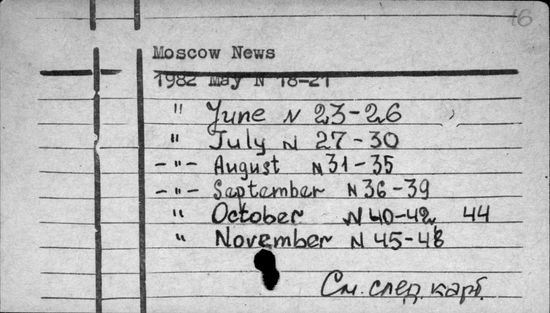 16
Moscow News
1982 May N 18-21
" June N 23-26
" July N 27-30
-"- August N 31-35
-"- September N 36-39
" October N 40-42 44
" November N 45-48
См. след. карт.